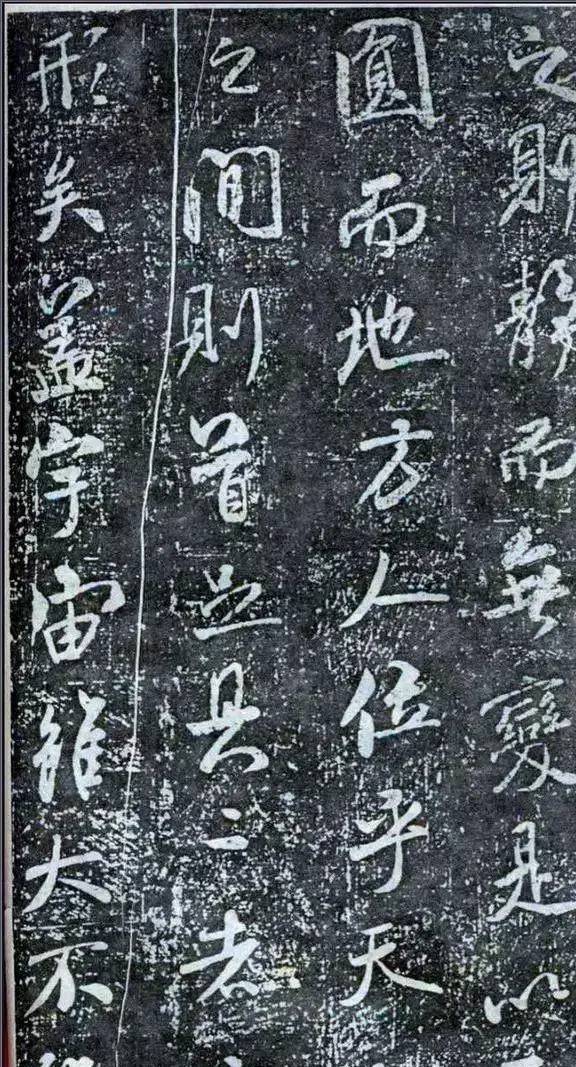 之則靜而無變是以
圓而地方人位乎天
之間則首足具二者
形矣盖宇宙雖大不